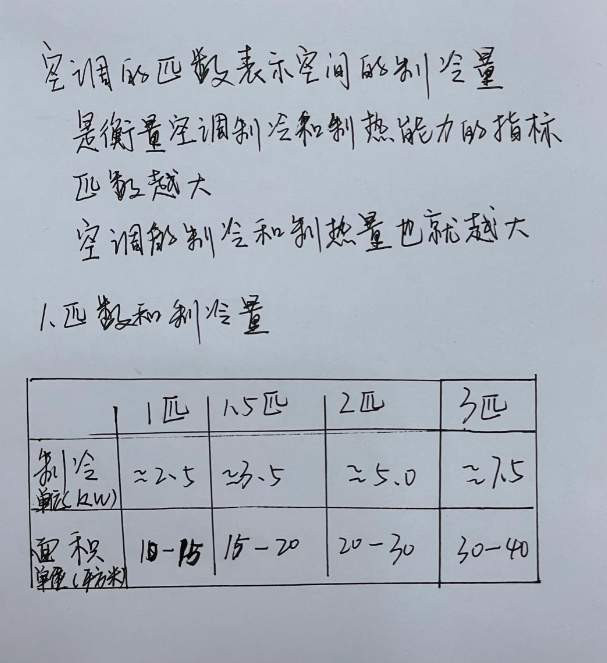 空调的匹数表示空间的制冷量
是衡量空调制冷和制热能力的指标
匹数越大
空调的制冷和制热量也就越大
1、匹数和制冷量
1匹 1.5匹 2匹 3匹
制冷 ≈2.5 ≈3.5 ≈5.0 ≈7.5
单位(KW)
面积 10-15 15-20 20-30 30-40
单位(平方米)